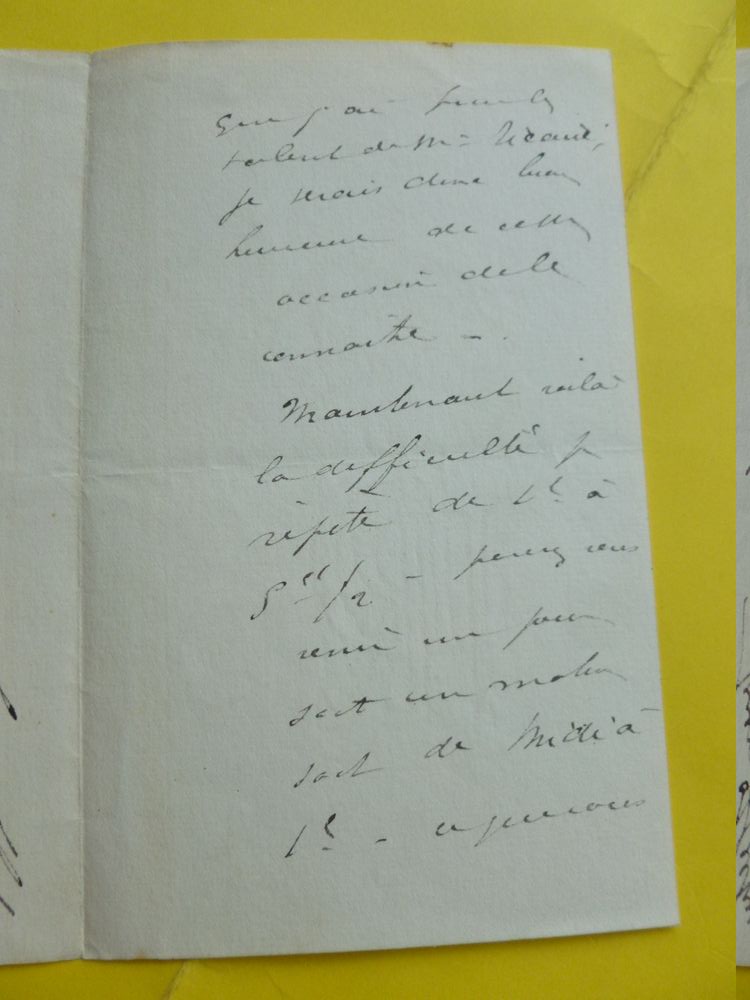 que j'ai pour le
talent de Mr
je serais donc bien
heureuse de cette
occasion de le
connaître - .
Maintenant voilà
la difficulté je
répète de 1h à
5h 1/2 - pouvez vous
venir un jour
soit un matin
soit de Midi à
1h -